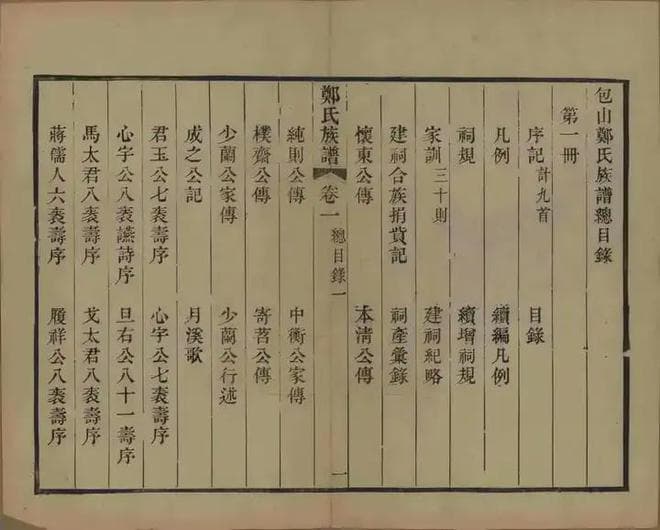 包山鄭氏族譜總目錄
第一冊
序記計九首 目錄
凡例 續編凡例
祠規 續增祠規
家訓三十則 建祠紀略
建祠合族捐貲記 祠產彙錄
懷東公傳 本清公傳
鄭氏族譜 卷一 總目錄一 一
純則公傳 中衡公家傳
樸齋公傳 寄莟公傳
少蘭公家傳 少蘭公行述
成之公記 月溪歌
君玉公七袠壽序 心字公七袠壽序
心字公八袠讌詩序 旦右公八十一壽序
馬太君八袠壽序 戈太君八袠壽序
蔣孺人六袠壽序 履祥公八袠壽序